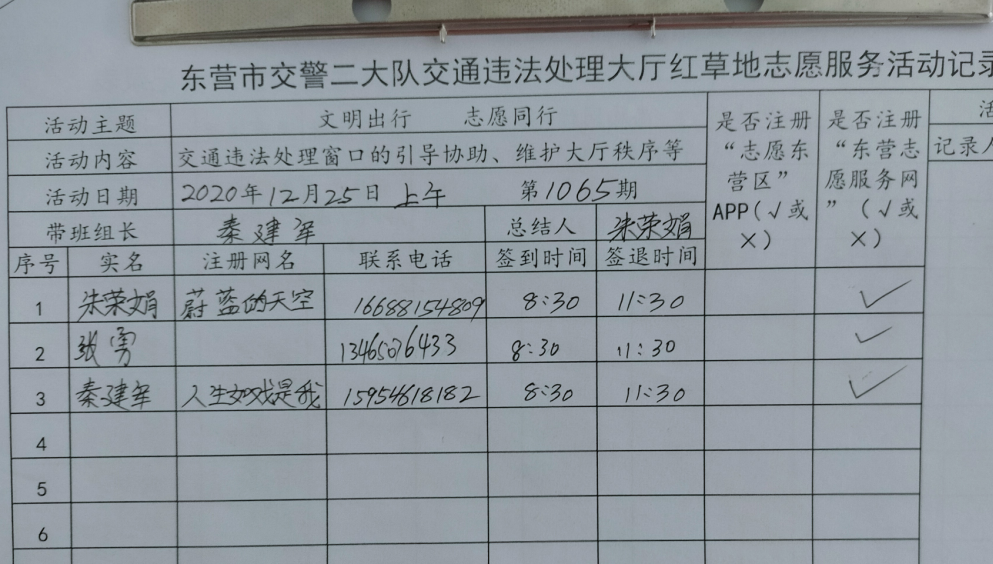 东营市交警二大队交通违法处理大厅红草地志愿服务活动记录
活动主题 文明出行 志愿同行
活动内容 交通违法处理窗口的引导协助、维护大厅秩序等
活动日期 2020年12月25日 上午 第1065期
带班组长 秦建军 总结人 朱荣娟
是否注册“志愿东营区”APP(√或×)
是否注册“东营志愿服务网”(√或×)
记录人
序号 实名 注册网名 联系电话 签到时间 签退时间
1 朱荣娟 蔚蓝的天空 16688154809 8:30 11:30 ✓
2 张勇 13465076433 8:30 11:30 ✓
3 秦建军 人生如戏是我 15954618182 8:30 11:30 ✓
4
5
6